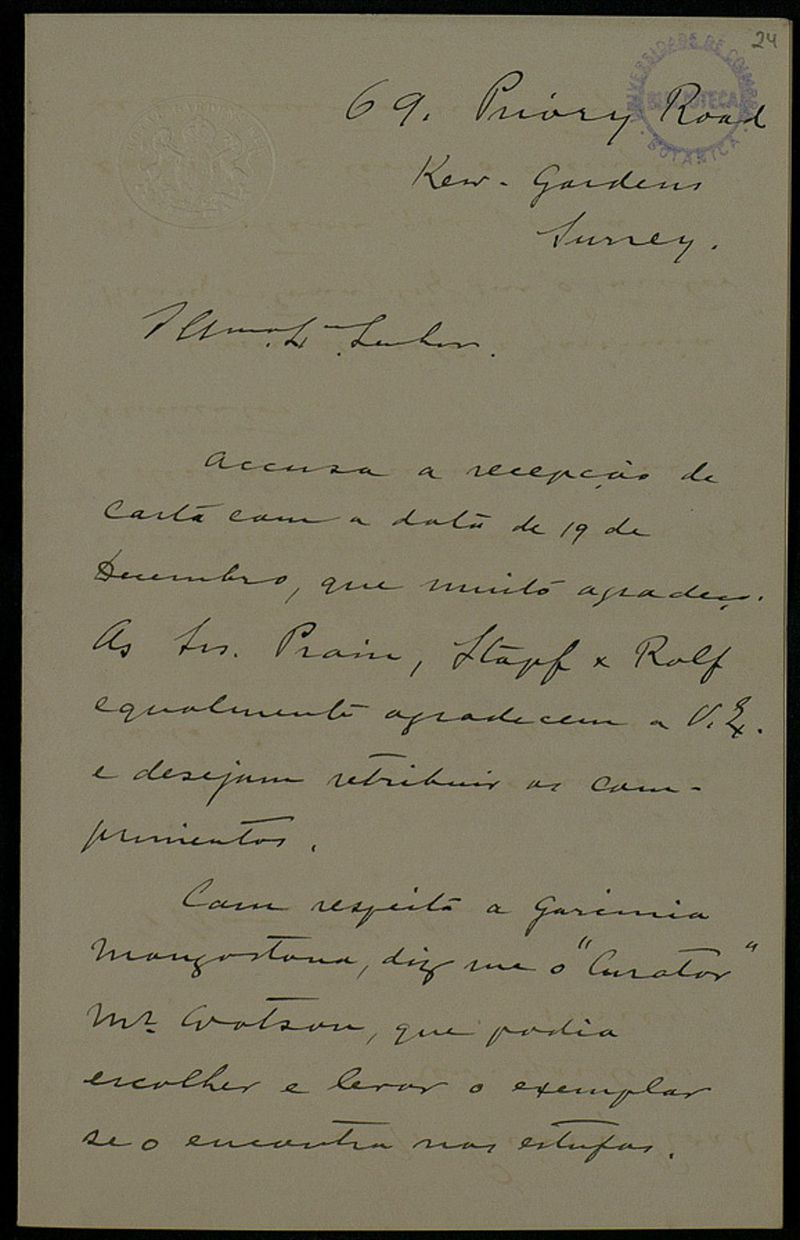 24
UNIVERSIDADE DE COIMBRA
BIBLIOTECA
BOTANICA
69. Priory Road
Kew-Gardens
Surrey.
Senhor.
Accuso a recepção de
carta com a data de 19 de
Dezembro, que muito agradeço.
Os Srs. Prain, Stapf & Rolf
egualmente agradecem a V. Ex.
e desejam retribuir os com-
primentos.
Com respeito a Garcinia
Mangostana, diz me o "Curator"
Mr. Watson, que podia
escolher e levar o exemplar
se o encontra nas estufas.